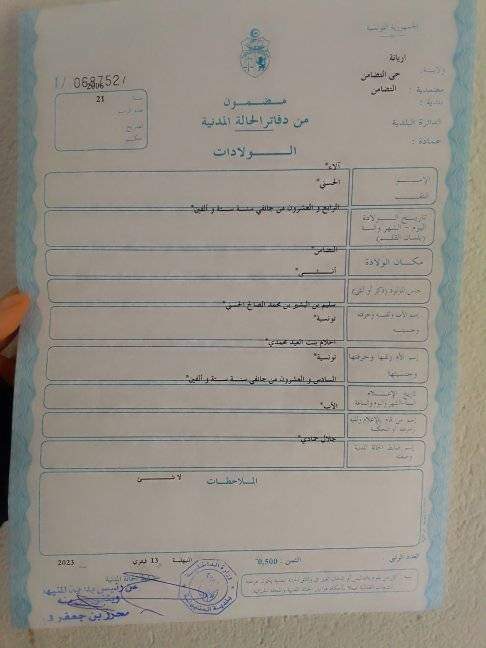 الجمهورية التونسية
ولاية: اريانة
معتمدية: حي التضامن
بلدية: التضامن
الدائرة البلدية
عمادة:
1/ 0687527
سنة 2006
عدد الرسم 21
مضمون
من دفاتر الحالة المدنية
الولادات
الإسم آلاء*
اللقب الحسني*
تاريخ الولادة
اليوم - الشهر والسنة
(بلسان القلم)
الرابع و العشرون من جانفي سنة ستة و ألفين*
مكان الولادة التضامن*
جنس المولود (ذكر أو أنثى) أنـــثـــى*
إسم الأب ولقبه وحرفته سليم بن البشير بن محمد الصالح الحسني*
وجنسيته تونسية*
إسم الأم ولقبها وحرفتها احلام بنت العيد محمدي*
وجنسيتها تونسية*
تاريخ الإعلام
السادس و العشرون من جانفي سنة ستة و ألفين*
إسم من قام بالإعلام ولقبه
الأب*
إسم ضابط الحالة المدنية
وصفته
جلال حمادي*
الملاحظات
لا شـــئ
العدد الرتبي
الثمن: 0,500
المنيهلة في 13 فيفري 2023
ضابط الحالة المدنية
محرز بن جعفر
وزارة الداخلية
بلدية المنيهلة